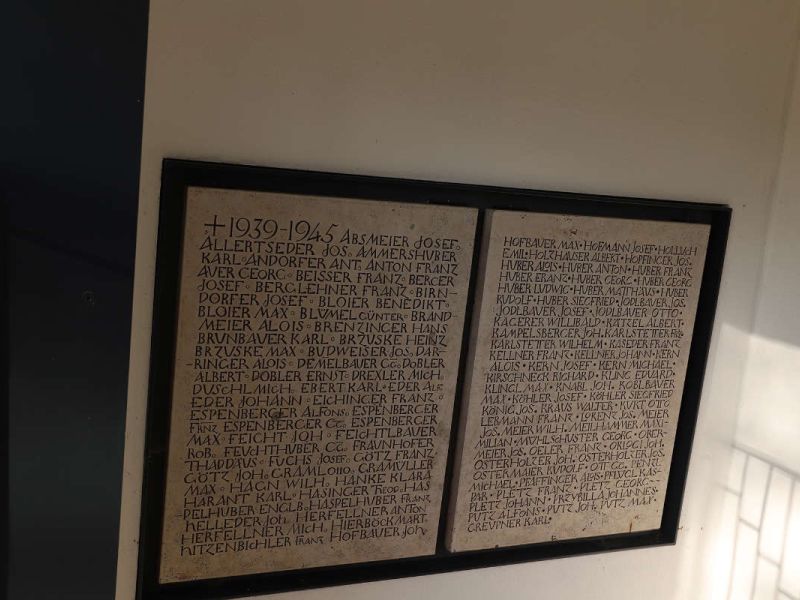 +1939-1945 ABSMEIER JOSEF◦
ALLERTSEDER JOS◦ AMMERSHUBER
KARL◦ ANDORFER ANT◦ ANTON FRANZ
AUER GEORG◦ BEISSER FRANZ◦ BERGER
JOSEF◦ BERGLEHNER FRANZ◦ BIRN-
DORFER JOSEF◦ BLOIER BENEDIKT◦
BLOIER MAX◦ BLÜMEL GÜNTER◦ BRAND-
MEIER ALOIS◦ BRENZINGER HANS
BRUNBAUER KARL◦ BRZUSKE HEINZ
BRZUSKE MAX◦ BUDWEISER JOS◦ DAR-
-RINGER ALOIS◦ DEMELBAUER GG◦ DOBLER
ALBERT◦ DOBLER ERNST◦ DREXLER MICH◦
DUSCHL MICH◦ EBERT KARL◦ EDER ALF◦
EDER JOHANN◦ EICHINGER FRANZ◦
ESPENBERGER ALFONS◦ ESPENBERGER
FRNZ◦ ESPENBERGER GG◦ ESPENBERGER
MAX◦ FEICHT JOH◦ FEICHTLBAUER
ROB◦ FEUCHTHUBER GG◦ FRAUNHOFER
THADDÄUS◦ FUCHS JOSEF◦ GÖTZ FRANZ
GÖTZ JOH◦ GRAML OTTO◦ GRAMÜLLER
MAX◦ HAGN WILH◦ HANKE KLARA
HARANT KARL◦ HASINGER THEOD◦ HAS
-PELHUBER ENGLB◦ HASPELHUBER FRANZ
HELLEDER JOH◦ HERFELLNER ANTON
HERFELLNER MICH◦ HIERBÖCK MART◦
HITZENBICHLER FRANZ◦ HOFBAUER JOH◦
HOFBAUER MAX• HOFMANN JOSEF• HOLLBACH
EMIL• HOLZHAUSER ALBERT• HÖPFINGER JOS•
HUBER ALOIS• HUBER ANTON• HUBER FRANK
HUBER FRANZ• HUBER GEORG• HUBER GEORG
HUBER LUDWIG• HUBER MATTHÄUS• HUBER
RUDOLF• HUBER SIEGFRIED• JODLBAUER JOS•
JODLBAUER JOSEF• JODLBAUER OTTO•
KAGERER WILLIBALD• KÄTZEL ALBERT•
KAMPELSBERGER JOH• KARLSTETTER FRZ•
KARLSTETTER WILHELM• KASEDER FRANZ
KELLNER FRANZ• KELLNER JOHANN• KERN
ALOIS• KERN JOSEF• KERN MICHAEL•
HIRSCHNECK RICHARD• KLING EDUARD
KLINGL MAX• KNABL JOH• KOBLBAUER
MAX• KÖHLER JOSEF• KÖHLER SIEGFRIED
KÖNIG JOS• KRAUS WALTER• KUKT OTTO
LEBMANN FRANZ• LORENZ JOS• MEIER
JOS• MEIER WILH• MEILHAMMER MAXI-
MILIAN• MÜHLSCHUSTER GEORG• OBER-
MEIER JOS• OELER FRANZ• ORTAG JOH•
OSTERHOLZER JOH• OSTERHOLZER JOS•
OSTERMAIER RUDOLF• OTT GG• PENZL
MICHAEL• PFAFFINGER ALOIS• PFLÜGL KAS-
PAR• PLETZ FRANZ• PLETZ GEORG•
PLETZ JOHANN• PRZYBILLA JOHANNES•
PUTZ ALFONS• PUTZ JOH• PUTZ MAX•
GREUPNER KARL•